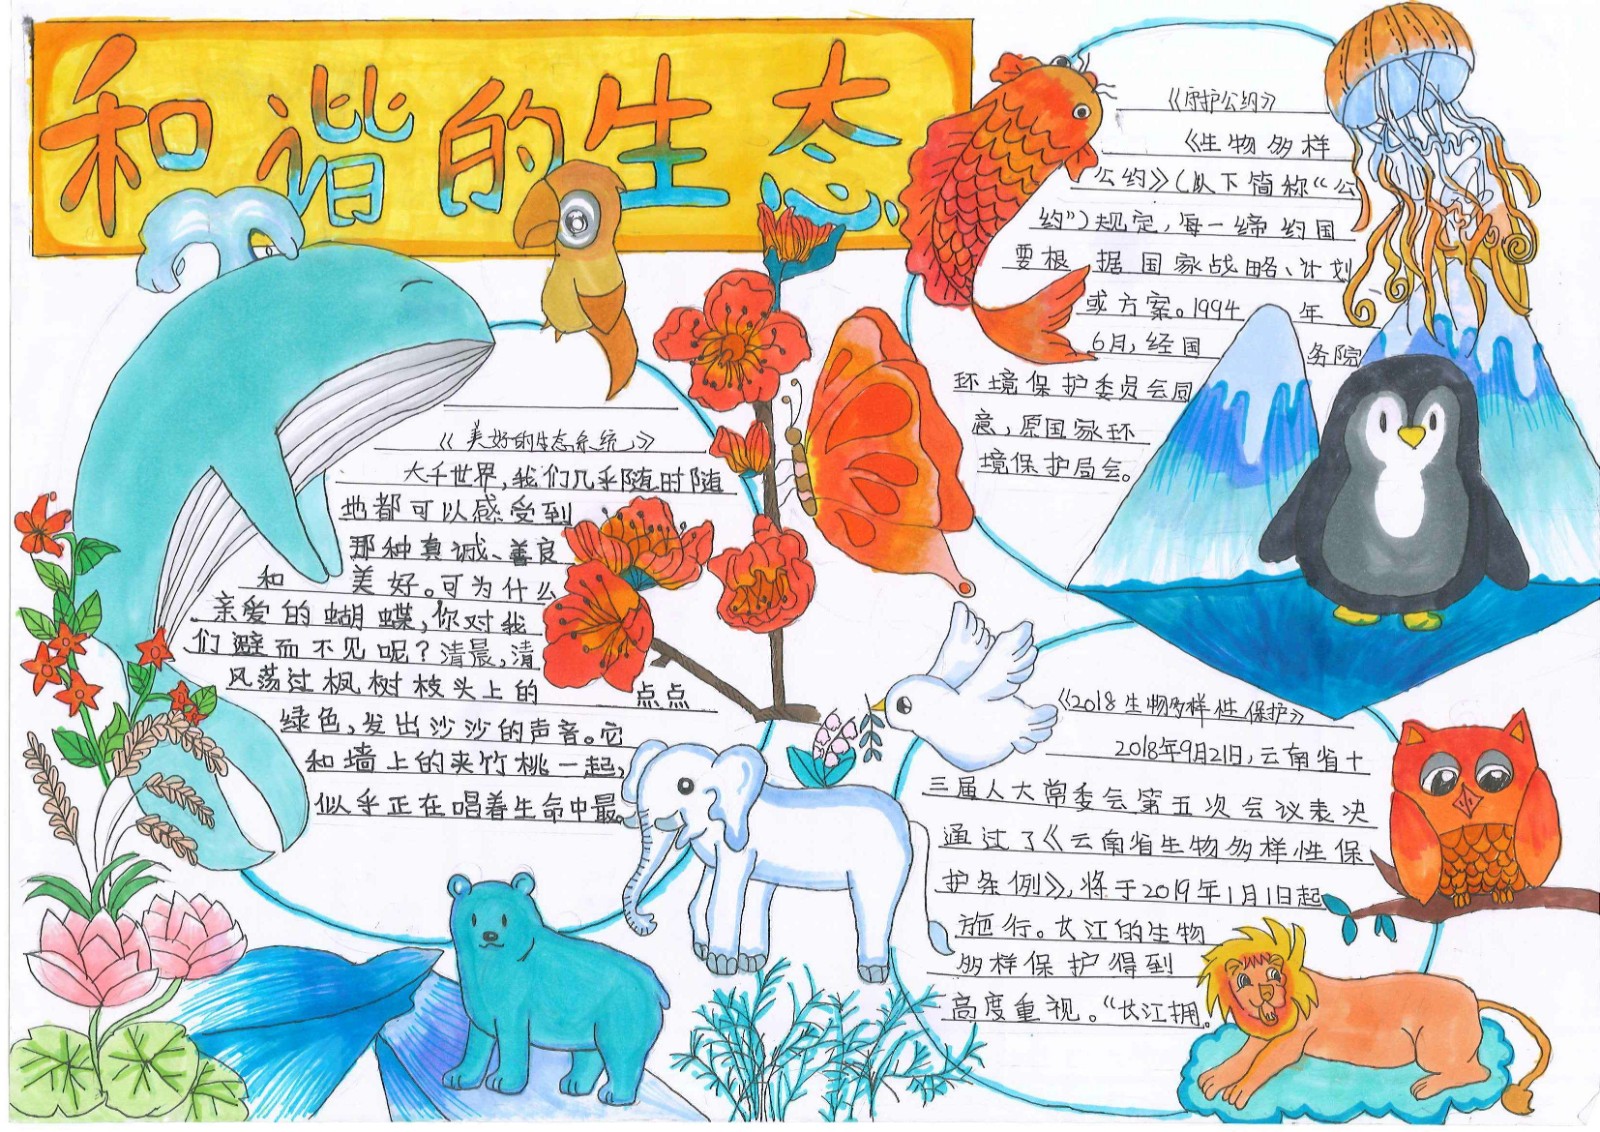 和谐的生态
《美好的生态系统》
大千世界,我们几乎随时随
地都可以感受到
那种真诚、善良
和 美好。可为什么
亲爱的蝴蝶,你对我
们避而不见呢?清晨,清
风荡过枫树枝头上的 点点
绿色,发出沙沙的声音。它
和墙上的夹竹桃一起,
似乎正在唱着生命中最。
《守护公约》
《生物多样
公约》(以下简称“公
约”)规定,每一缔约国
要根据国家战略、计划
或方案。1994 年
6月,经国 务院
环境保护委员会同
意,原国家环
境保护局会。
《2018生物多样性保护》
2018年9月21日,云南省十
三届人大常委会第五次会议表决
通过了《云南省生物多样性保
护条例》,将于2019年1月1日起
施行。长江的生物
多样保护得到
高度重视。“长江拥。